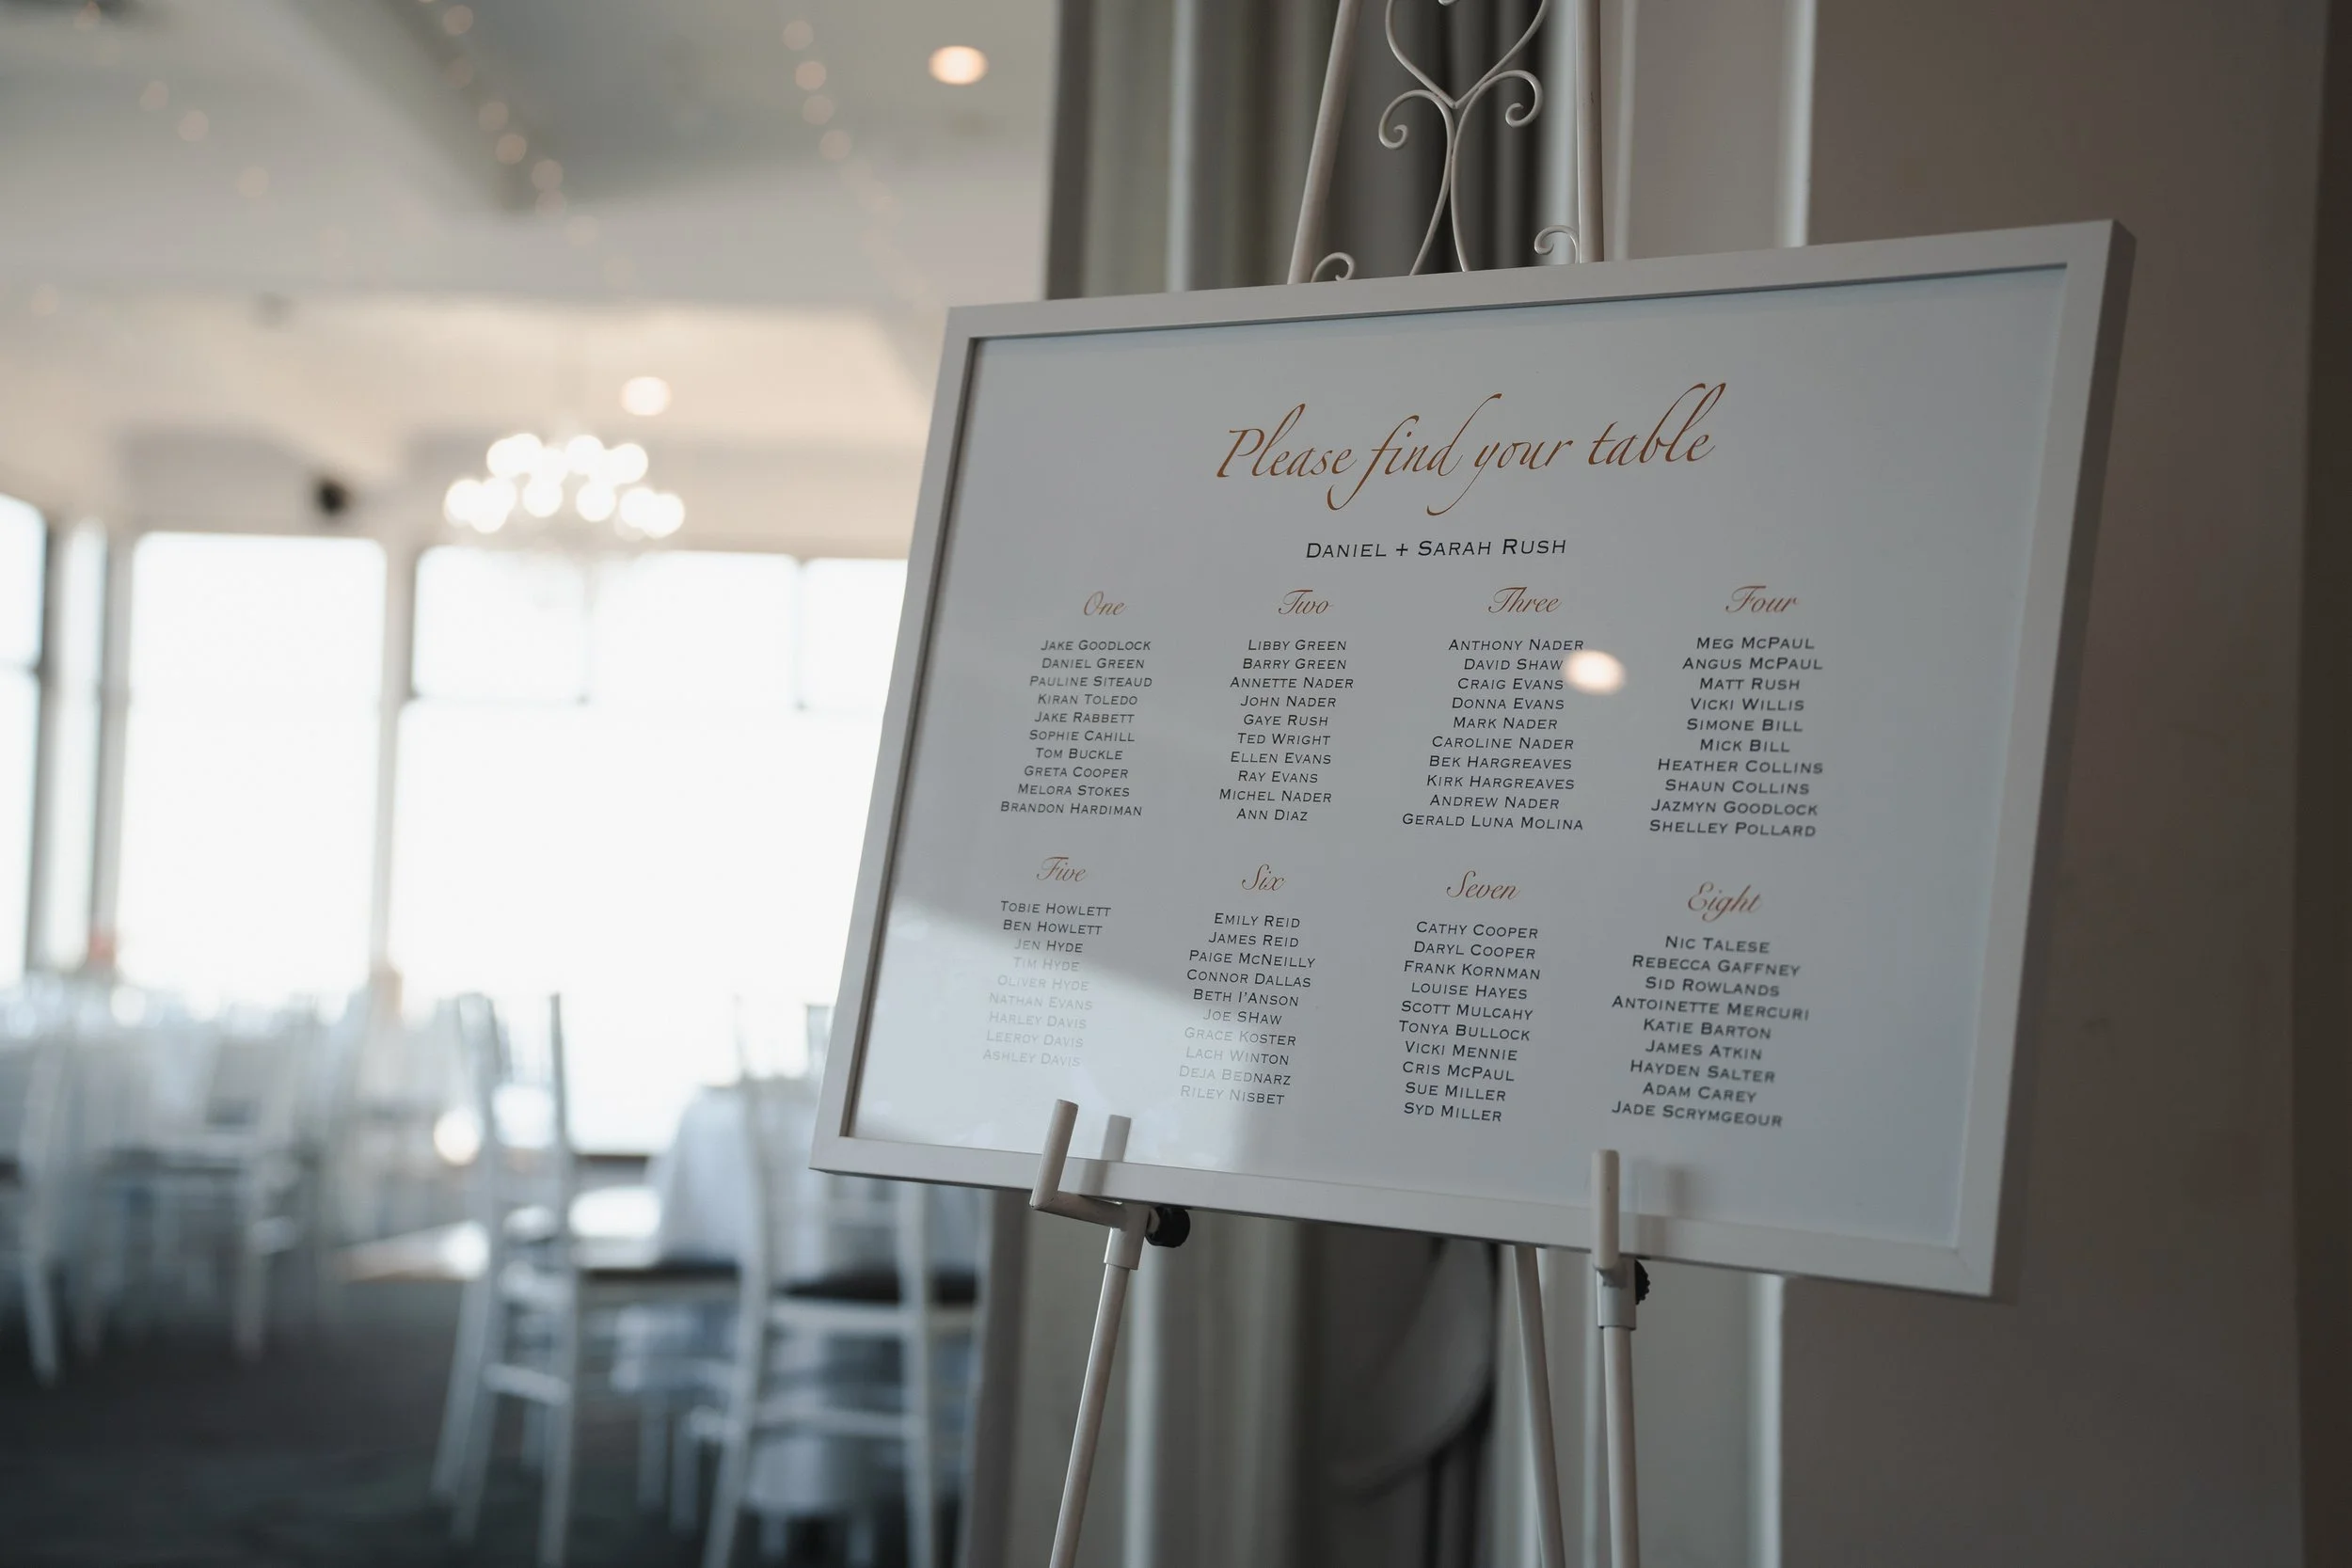 Please find your table
DANIEL + SARAH RUSH
One
JAKE GOODLOCK
DANIEL GREEN
PAULINE SITEAUD
KIRAN TOLEDO
JAKE RABBETT
SOPHIE CAHILL
TOM BUCKLE
GRETA COOPER
MELORA STOKES
BRANDON HARDIMAN
Two
LIBBY GREEN
BARRY GREEN
ANNETTE NADER
JOHN NADER
GAYE RUSH
TED WRIGHT
ELLEN EVANS
RAY EVANS
MICHEL NADER
ANN DIAZ
Three
ANTHONY NADER
DAVID SHAW
CRAIG EVANS
DONNA EVANS
MARK NADER
CAROLINE NADER
BEK HARGREAVES
KIRK HARGREAVES
ANDREW NADER
GERALD LUNA MOLINA
Four
MEG MCPAUL
ANGUS MCPAUL
MATT RUSH
VICKI WILLIS
SIMONE BILL
MICK BILL
HEATHER COLLINS
SHAUN COLLINS
JAZMYN GOODLOCK
SHELLEY POLLARD
Five
TOBIE HOWLETT
BEN HOWLETT
JEN HYDE
TIM HYDE
OLIVER HYDE
NATHAN EVANS
HARLEY DAVIS
LEEROY DAVIS
ASHLEY DAVIS
Six
EMILY REID
JAMES REID
PAIGE MCNEILLY
CONNOR DALLAS
BETH I'ANSON
JOE SHAW
GRACE KOSTER
LACH WINTON
DEJA BEDNARZ
RILEY NISBET
Seven
CATHY COOPER
DARYL COOPER
FRANK KORNMAN
LOUISE HAYES
SCOTT MULCAHY
TONYA BULLOCK
VICKI MENNIE
CRIS MCPAUL
SUE MILLER
SYD MILLER
Eight
NIC TALESE
REBECCA GAFFNEY
SID ROWLANDS
ANTOINETTE MERCURI
KATIE BARTON
JAMES ATKIN
HAYDEN SALTER
ADAM CAREY
JADE SCRYMGEOUR